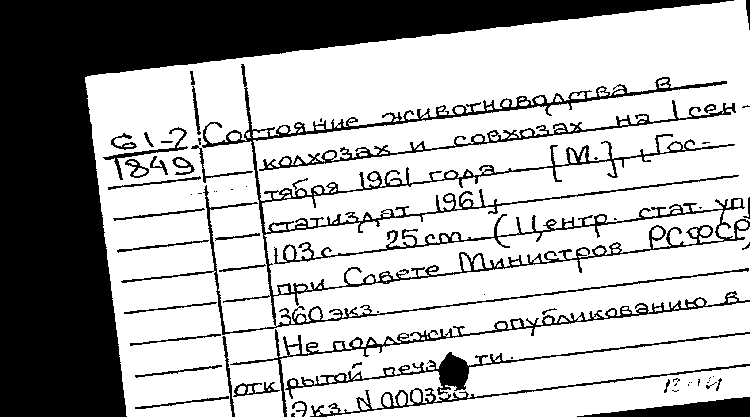 61-2 Состояние животноводства в
1849 колхозах и совхозах на 1 сен-
тября 1961 года. [М.], "Гос-
статиздат, 1961,
103 с. 25 cm. (Центр. стат. упр
при Совете Министров РСФСР)
360 экз.
Не подлежит опубликованию в
открытой печати.
Экз. N 000356.